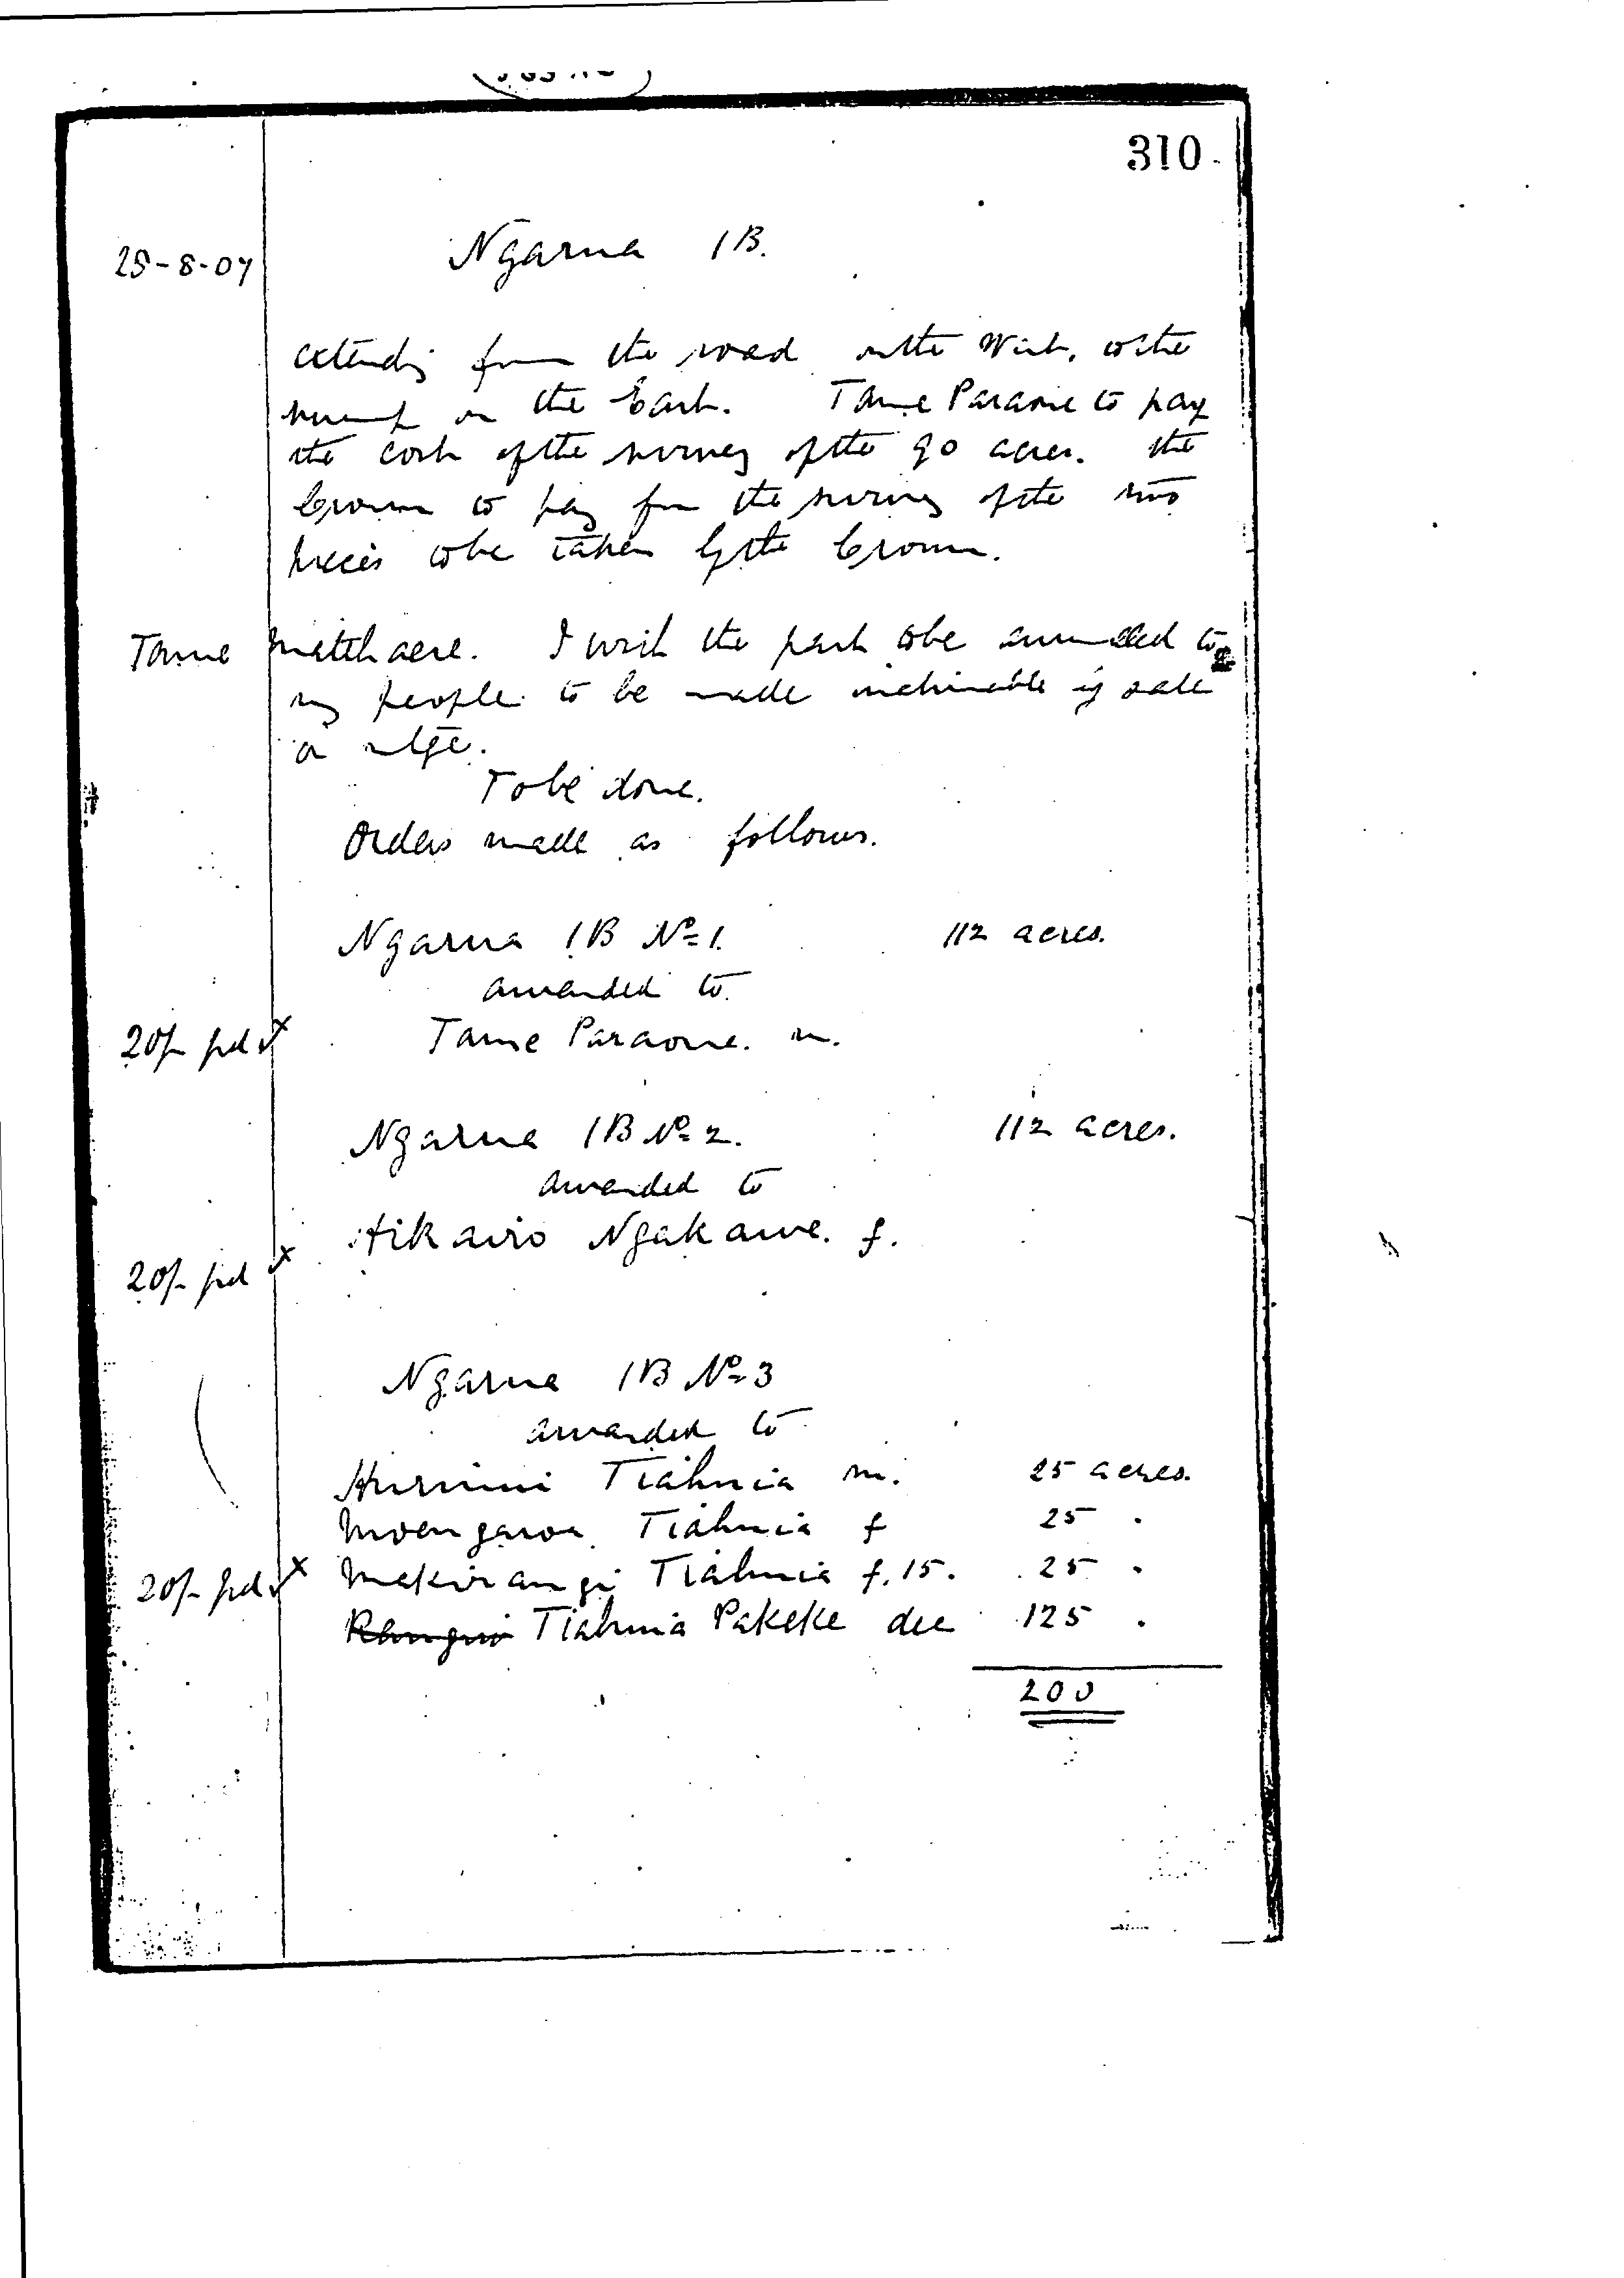 310
25-8-07
Ngarua 1B.
extending from the road on the West, to the
swamp on the East. Tame Paraone to pay
the cost of the survey of the 90 acres. The
Crown to pay for the survey of the two
pieces to be taken by the Crown.
Tame I wish the part to be awarded to
my people to be made inalienable by sale
or mtge.
To be done.
Orders made as follows.
Ngarua 1B No 1. 112 acres.
awarded to
20/- pd Tame Paraone. m.
Ngarua 1B No 2. 112 acres.
awarded to
Hikairo Ngakawe. f.
20/- pd
Ngarua 1B No 3
awarded to
Hurinui Tiahuia m. 25 acres.
Moengaroa Tiahuia f 25 "
20/- pd Mekirangi Tiahuia f. 15. 25 "
Tiahuia Pakeke dec 125 "
200